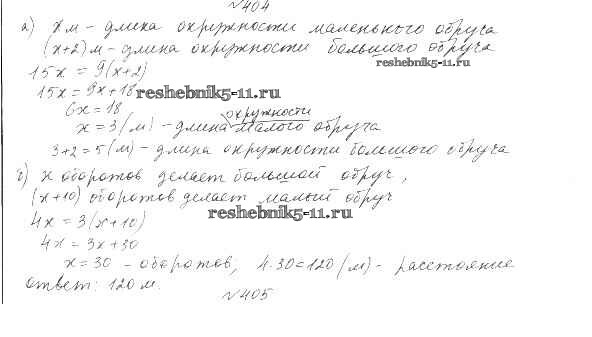 №404
а) x м - длина окружности маленького обруча
(x+2) м - длина окружности большого обруча
reshebnik5-11.ru
15x = 9(x+2)
15x = 9x+18
reshebnik5-11.ru
6x = 18
окружности
x = 3 (м) - длина малого обруча
3+2 = 5 (м) - длина окружности большого обруча
б) x оборотов делает большой обруч,
(x+10) оборотов делает малый обруч
reshebnik5-11.ru
4x = 3(x+10)
4x = 3x+30
x = 30 - оборотов, 4·30=120 (м) - расстояние
ответ: 120 м.
№405